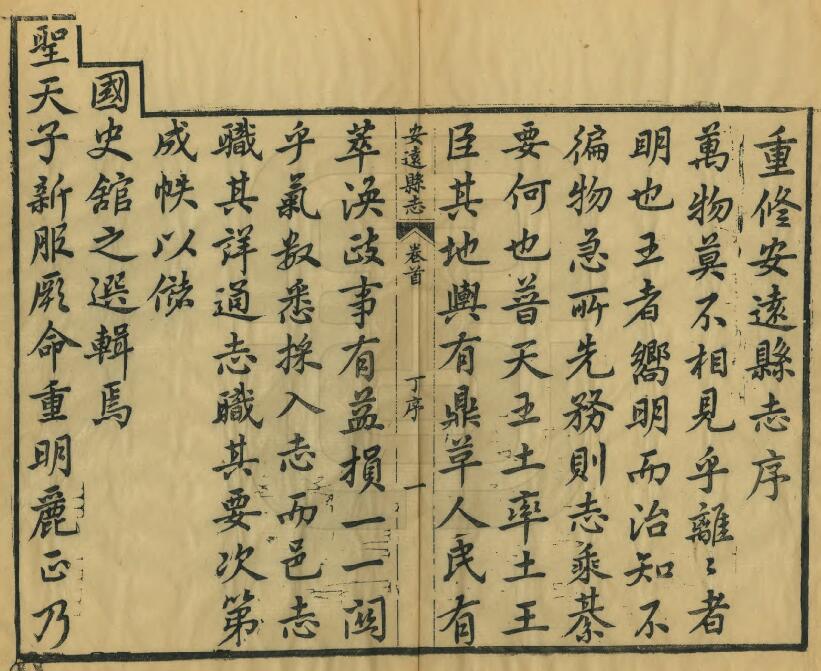 重修安遠縣志序
萬物莫不相見乎離離〻者
明也王者嚮明而治知不
徧物急所先務則志乘綦
要何也普天王土率土王
臣其地輿有鼎革人民有
安遠縣志 卷首 丁序 一
萃渙政事有益損一一關
乎氣數悉採入志而邑志
職其詳通志職其要次第
成帙以儲
國史舘之選輯焉
聖天子新服厥命重明麗正乃